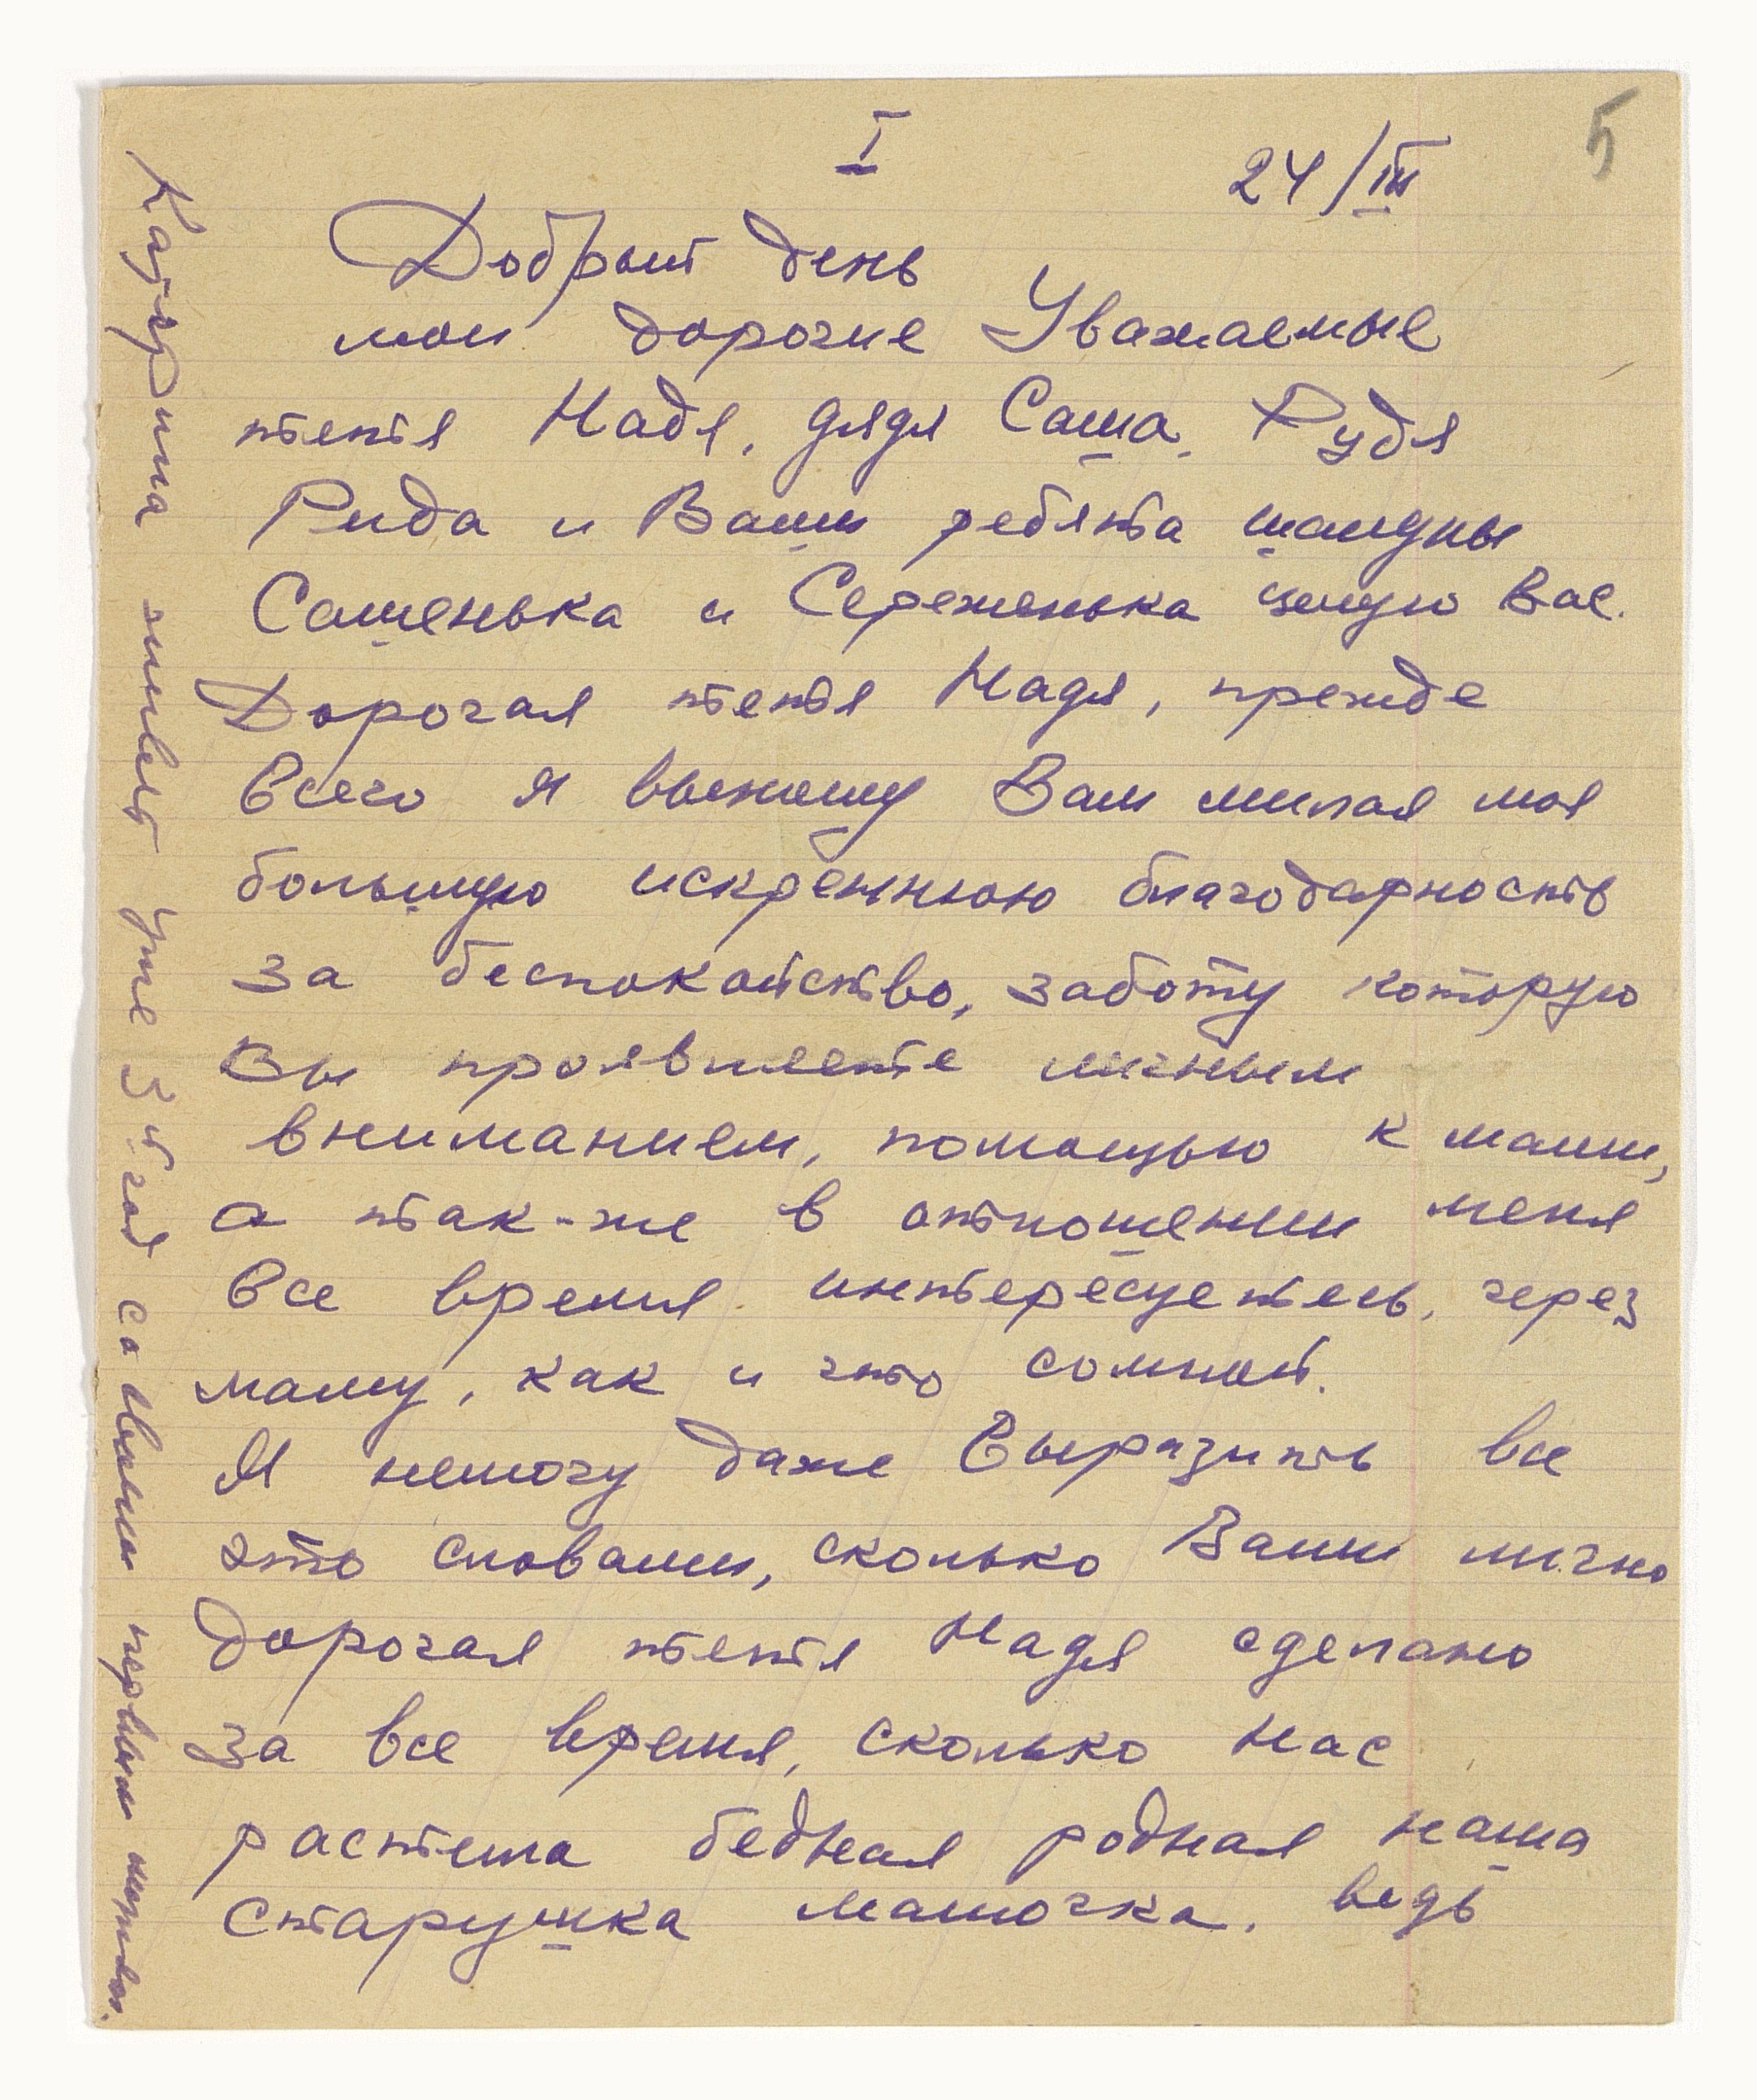 I
24/III
5
Добрый день
мои дорогие Уважаемые
тетя Надя, дядя Саша, Рудя
Рида и Ваши ребята шалуны
Сашенька и Сереженька целую Вас.
Дорогая тетя Надя, прежде
всего я выношу Вам милая моя
большую искреннюю благодарность
за беспокойство, заботу которую
Вы проявляете личным
вниманием, помощью к мами,
а так-же в отношении меня
Все время интересуетесь, через
маму, как и что сомной.
Я немогу даже Выразить все
это словами, сколько Вами лично
дорогая тетя Надя сделано
за все время, сколько нас
растила бедная родная наша
старушка мамочка, ведь
живет уже 3й год со своим первым мужем.